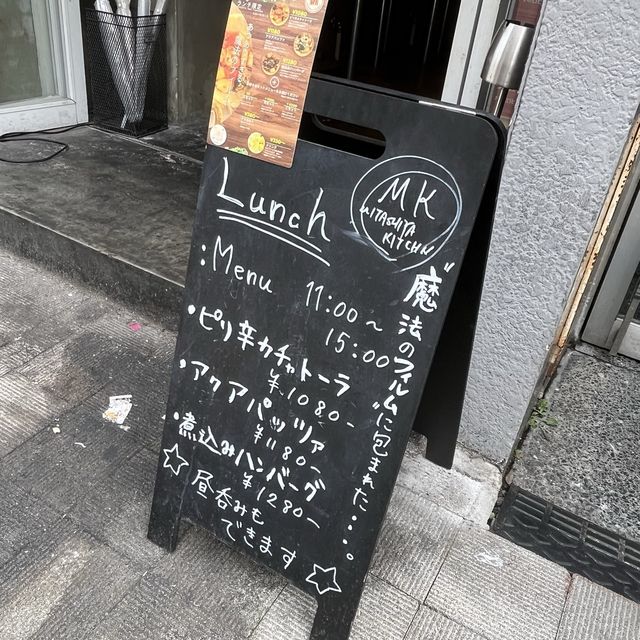 Lunch
MK
MITASHITA
KITCHN
:Menu 11:00～
15:00
・ピリ辛カチャトーラ
¥1080-
・アクアパッツァ
¥1180-
・煮込みハンバーグ
¥1280-
☆昼呑みも
できます☆
"魔法のフィルム"に包まれた・・・。